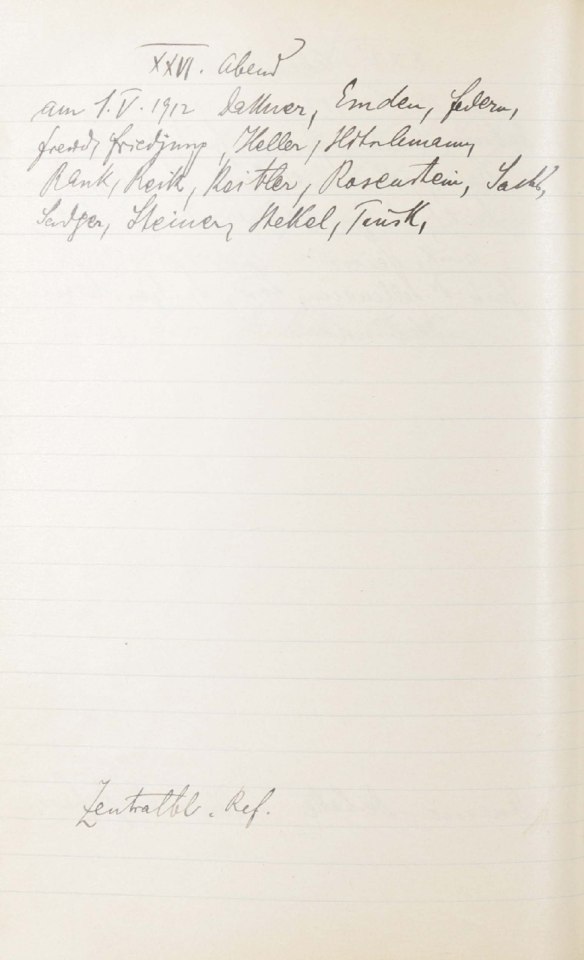 XXVI. Abend
am 1.V.1912 Dattner, Emden, Federn,
Freud, Friedjung, Heller, Hitschmann,
Rank, Reik, Reitler, Rosenstein, Sachs,
Sadger, Steiner, Stekel, Tausk,
Zentralbl. Ref.